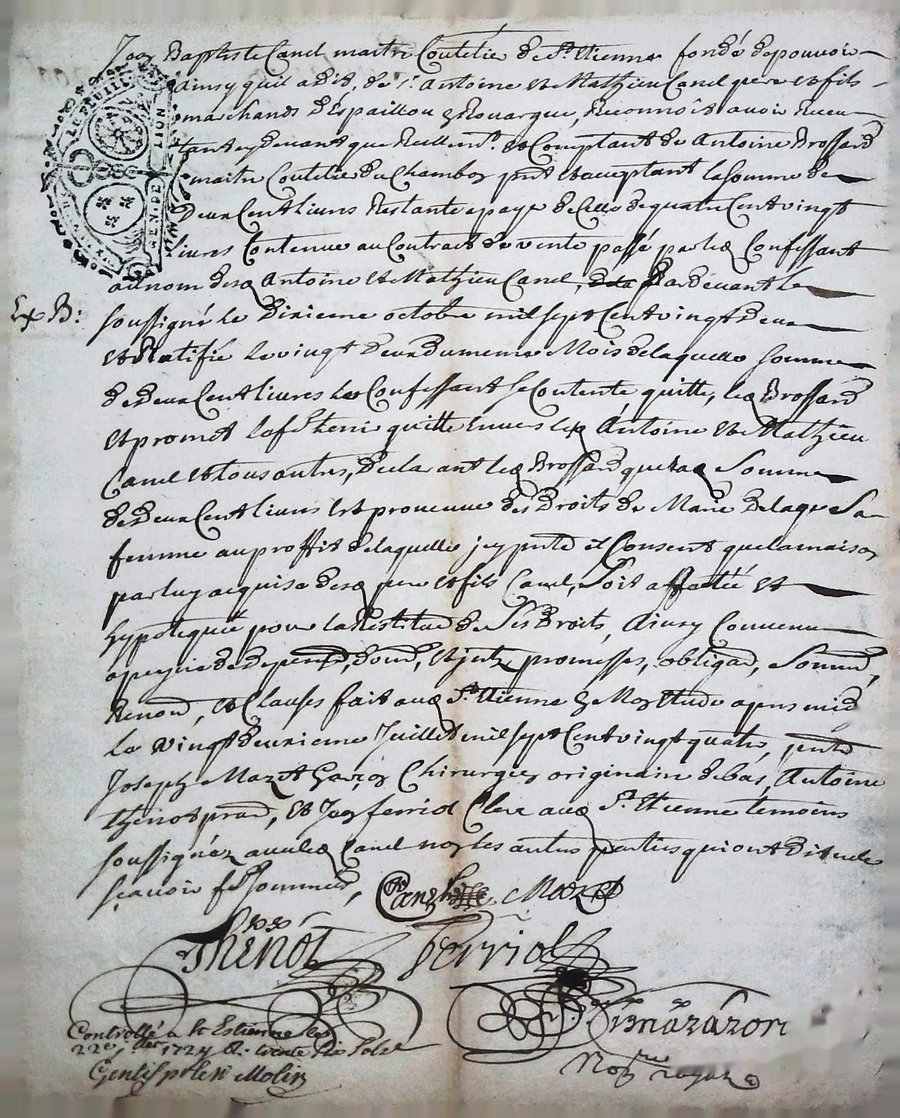 Jean Baptiste Canel maitre Coutelie de St. Etienne fondé de pouvoir
ainsy quil a dit, de Sr. Antoine et Mathieu Canel pere et fils
marchands d'Espaillou en Rouargue, Reconnoit avoir Receu
tant cy devant que Reellemt. et Comptant de Antoine Brossard
maitre Coutelie du Chambon pnt et acceptant la Somme de
Deux Cent livres Restante a paye de Celle de quatre Cent vingt
livres Contenue au Contract de vente passé par led Confessant
au nom desd Antoine et Mathieu Canel, Pardevant le
Ex B:
soussigné le Dixieme octobre mil sept Cent vingt deux
et Ratifié le vingt deux du meme Mois de laquelle Somme
de deux Cent livres led Confessant Se Contente quitte, led Brossard
et promet le quitte envers led Antoine et Mathieu
Canel et tous autres, declarant led Brossard que lad Somme
de deux Cent livres est provenue des Droits de Marie Delaque Sa
femme au proffit de laquelle et Consent que la maison
par luy acquise desd pere et fils Canel, Soit affectée et
hypotequée pour la Restitue de Ses Droits, Ainsy Convenu
a peyne de depend, domd, promesses, obligaō, Soumd,
Renond, et Clauses fait aud St. Etienne en Mon Etude apres midi
le vingt deuxieme Juillet mil sept Cent vingt quatre, pnts
Joseph Mazet Garçon Chirurgien originaire de bas, Antoine
thenot prad, et Jean ferriol Clerc aud St. Etienne temoins
soussignez avec led Canel non les autres parties qui ont dit ne le
sçavoir Sommés, Canel Mazet
Thenot Ferriol
Controllé a St Estienne le
22e, 1724 R. trente Six Sols
Gentispolen Molin
Not royal